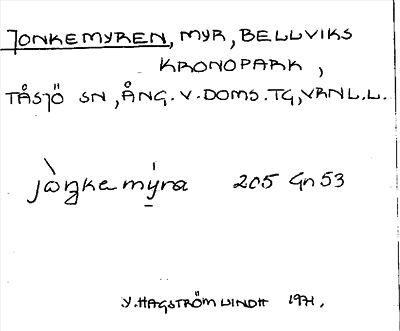 JONKEMYREN, MYR, BELLVIKS
KRONOPARK,
TÅSJÖ SN, ÅNG. V. DOMS. TG, VRNL.L.
jòŋkamýra 205 Gn 53
V. HAGSTRÖM LINDH 1971.